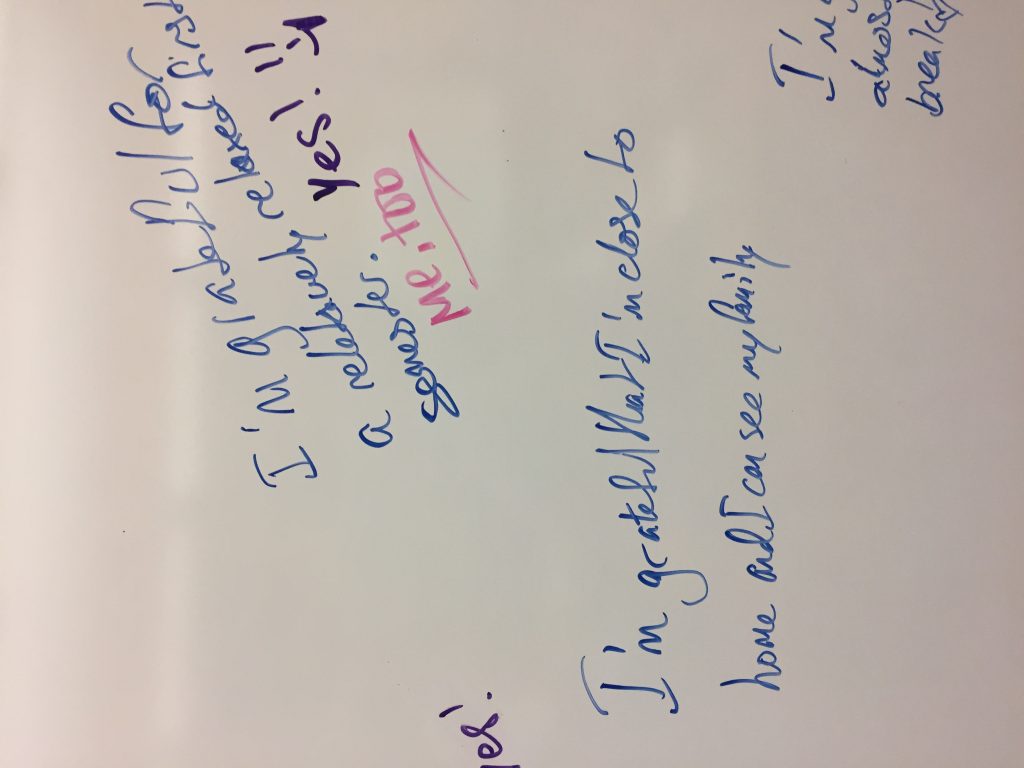 I'm grateful for
a relatively relaxed first
semester.
yes!
Me, too
yes!
I'm grateful that I'm close to
home and I can see my family
I'm